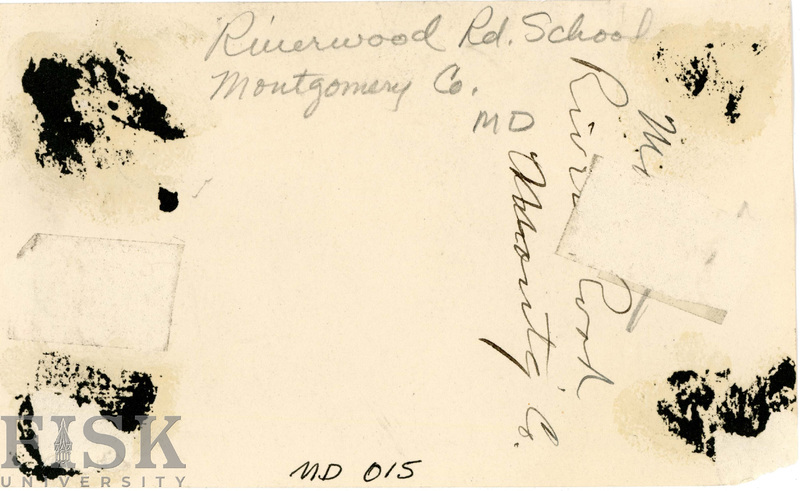 Riverwood Rd. School
Montgomery Co.
MD
Road
Co.
MD 015
FISK
UNIVERSITY